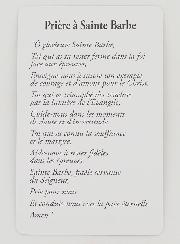 Prière à Sainte Barbe
Ô glorieuse Sainte Barbe,
Toi qui as su rester ferme dans ta foi
face aux
à suivre ton exemple
de courage et d'amour pour le Christ.
Toi qui as triomphé des ténèbres
par la lumière de l'Évangile,
Guide-nous dans les moments
de doute et d'incertitude.
Toi qui as connu la souffrance
et le martyre,
à rester fidèles
dans les épreuves.
Sainte Barbe,
du Seigneur,
Priez pour nous
Et conduis-nous vers la paix éternelle
Amen !